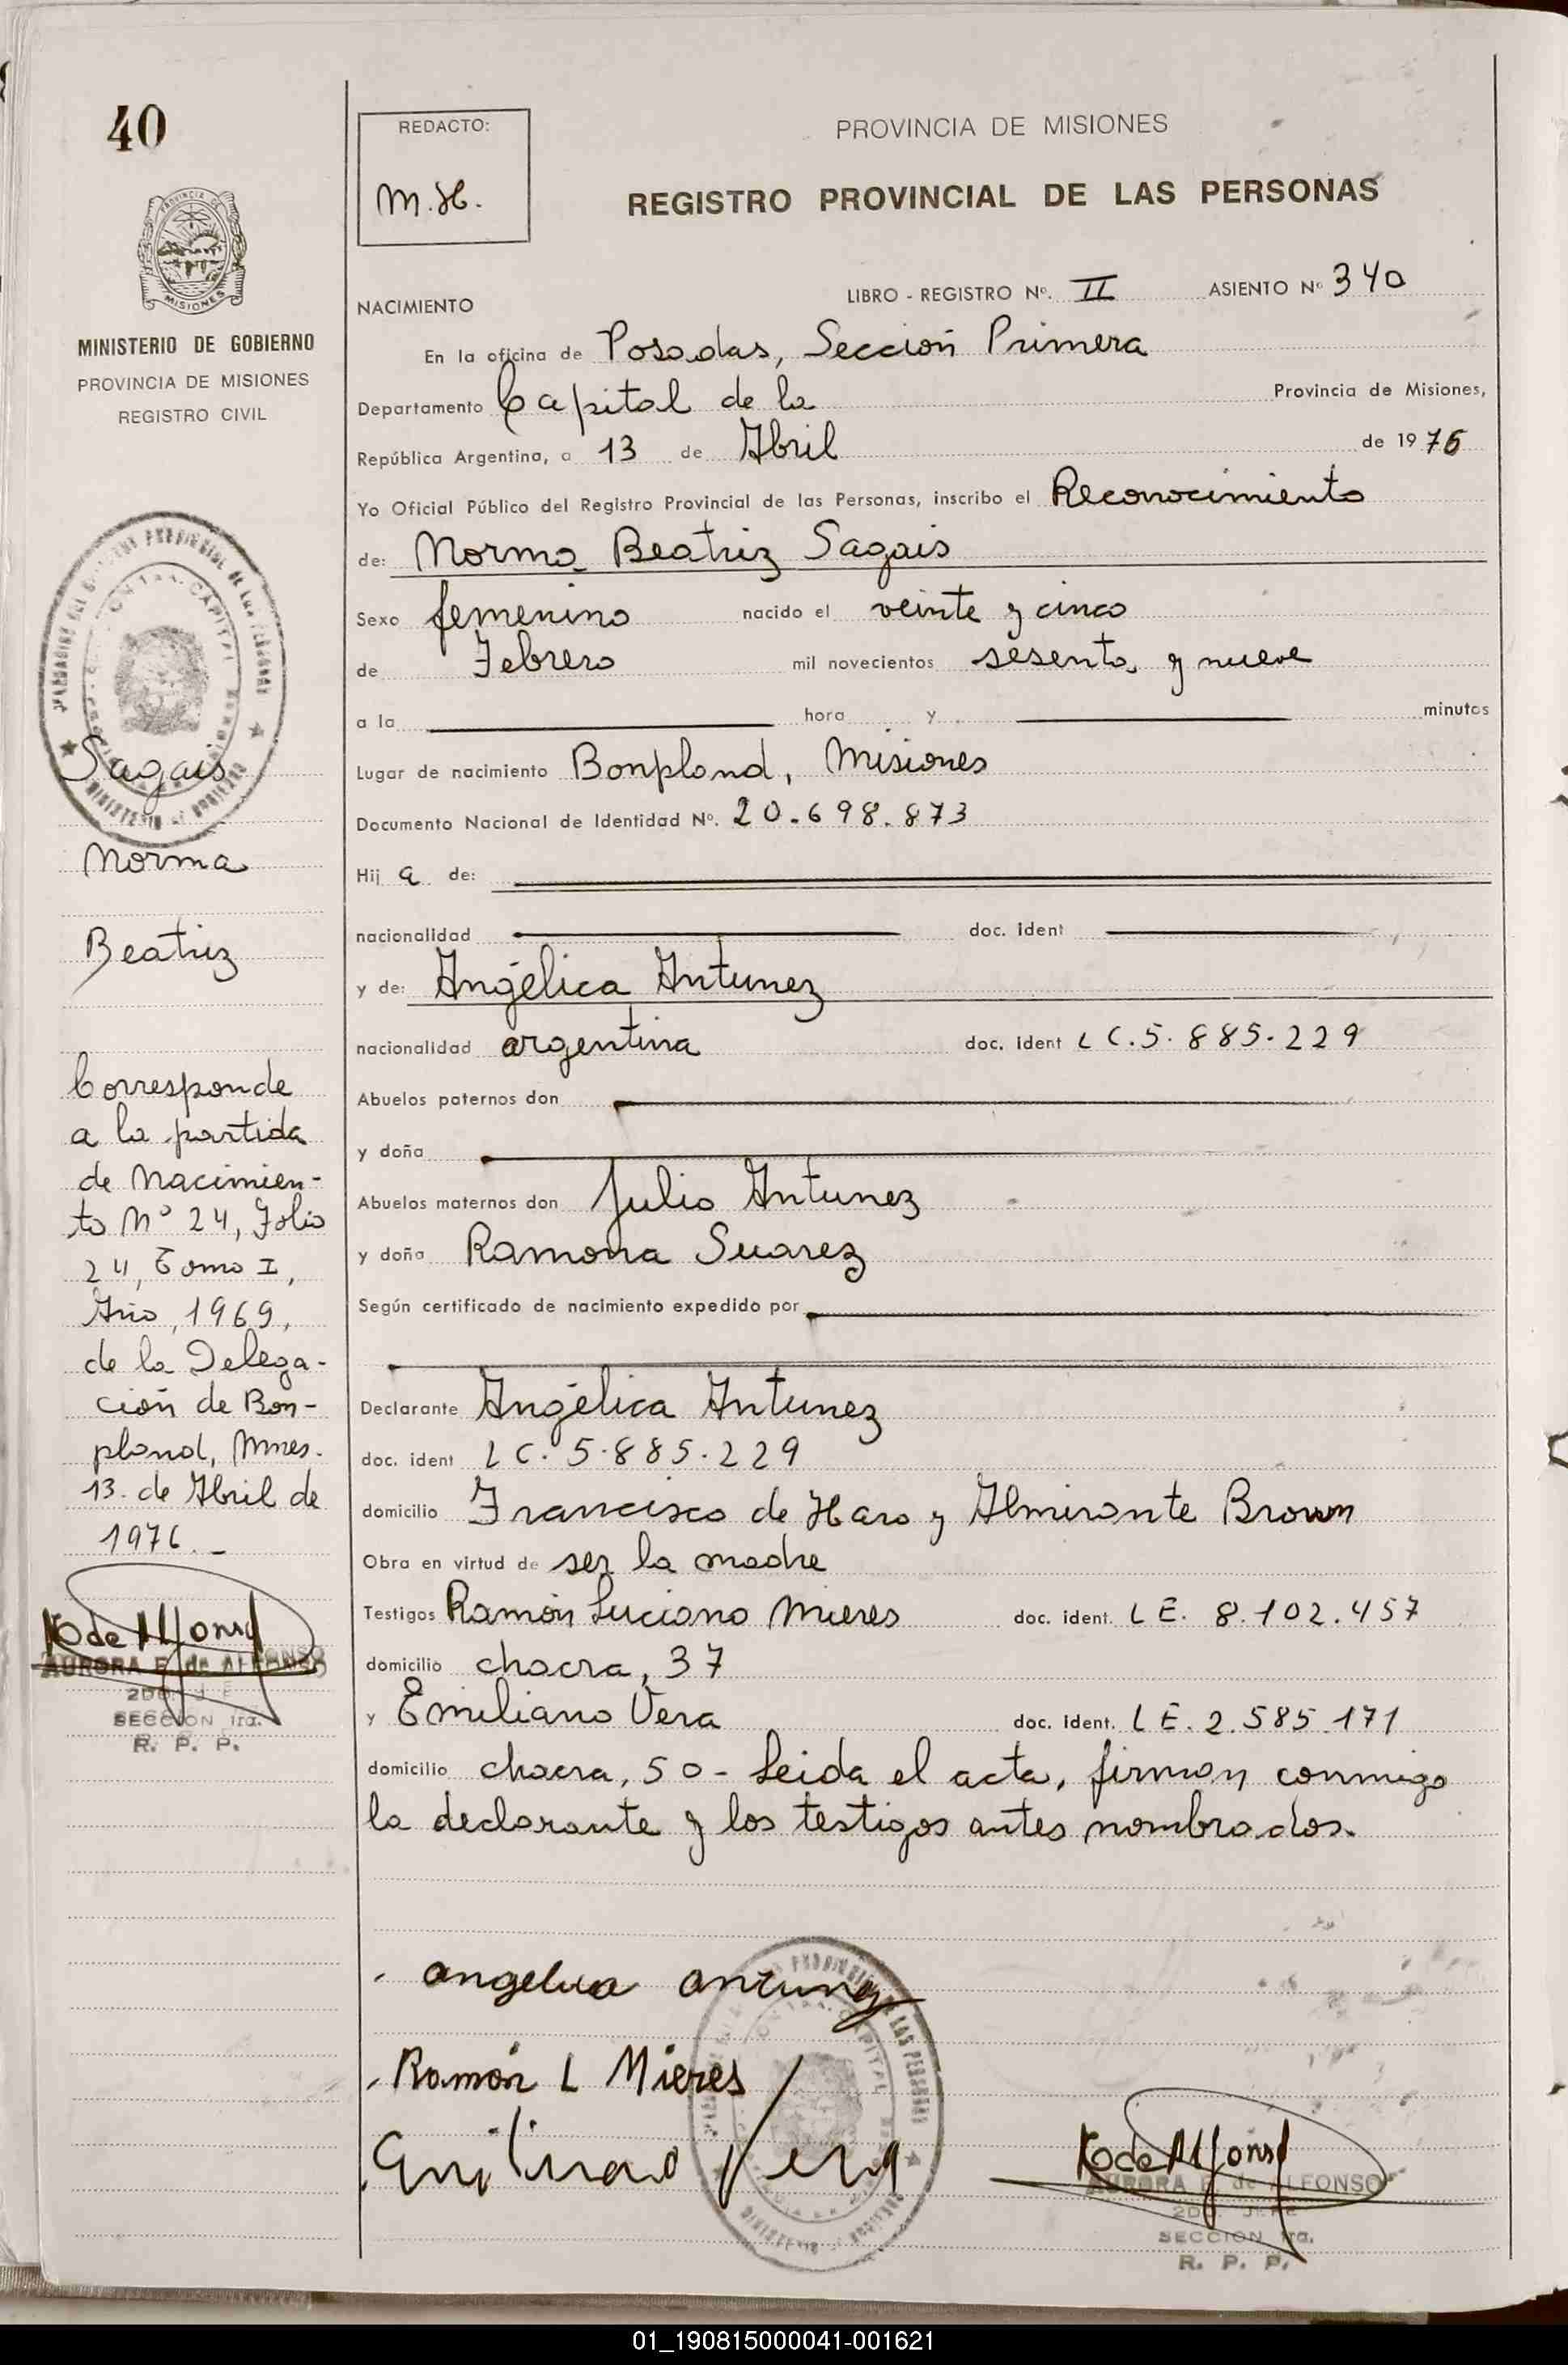 40
REDACTO:
M.H.
PROVINCIA DE MISIONES
REGISTRO PROVINCIAL DE LAS PERSONAS
MISIONES
MINISTERIO DE GOBIERNO
PROVINCIA DE MISIONES
REGISTRO CIVIL
NACIMIENTO
LIBRO - REGISTRO Nº. II ASIENTO Nº 340
En la oficina de Posadas, Sección Primera
Departamento Capital de la Provincia de Misiones,
República Argentina, a 13 de Abril de 1976
Yo Oficial Público del Registro Provincial de las Personas, inscribo el Reconocimiento
de: Norma Beatriz Sagais
Sexo femenino nacido el veinte y cinco
de Febrero mil novecientos sesenta y nueve
a la hora y minutos
Lugar de nacimiento Bonpland, Misiones
Documento Nacional de Identidad Nº. 20.698.873
Hij a de:
nacionalidad doc. ident
y de: Angélica Antunez
nacionalidad argentina doc. ident LC.5.885.229
Abuelos paternos don
y doña
Abuelos maternos don Julio Antunez
y doña Ramona Suarez
Según certificado de nacimiento expedido por
Declarante Angélica Antunez
doc. ident LC.5.885.229
domicilio Francisco de Haro y Almirante Brown
Obra en virtud de ser la madre
Testigos Ramón Luciano Mieres doc. ident. LE. 8.102.457
domicilio chacra, 37
y Emiliano Vera doc. ident. LE. 2.585.171
domicilio chacra, 50 - Leida el acta, firman conmigo
la declarante y los testigos antes nombrados.
Sagais
Norma
Beatriz
Corresponde
a la partida
de Nacimien-
to Nº 24, Folio
24, Tomo I,
Año, 1969,
de la Delega-
ción de Bon-
pland, Mnes.
13 de Abril de
1976._
AURORA E. de ALFONSO
2DO. JEFE
SECCION 1ra.
R. P. P.
angelica antunez
Ramón L Mieres
Emiliano Vera
AURORA E. de ALFONSO
2DO. JEFE
SECCION 1ra.
R. P. P.
01_190815000041-001621